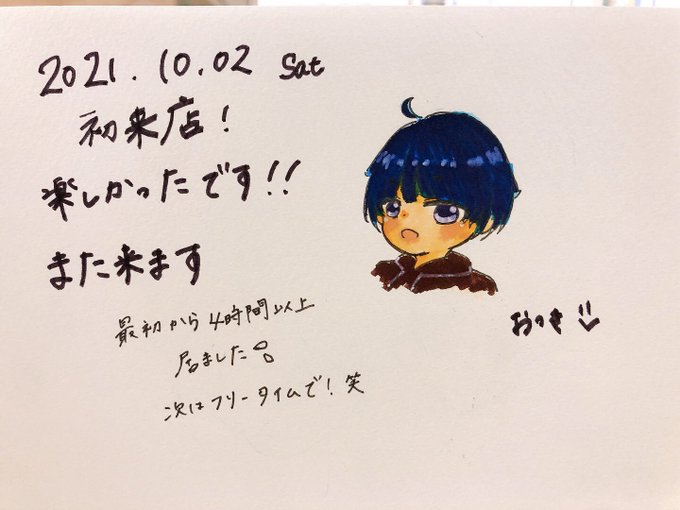 2021.10.02 sat
初来店!
楽しかったです!!
また来ます
最初から4時間以上
居ました。
次はフリータイムで!笑
おつき